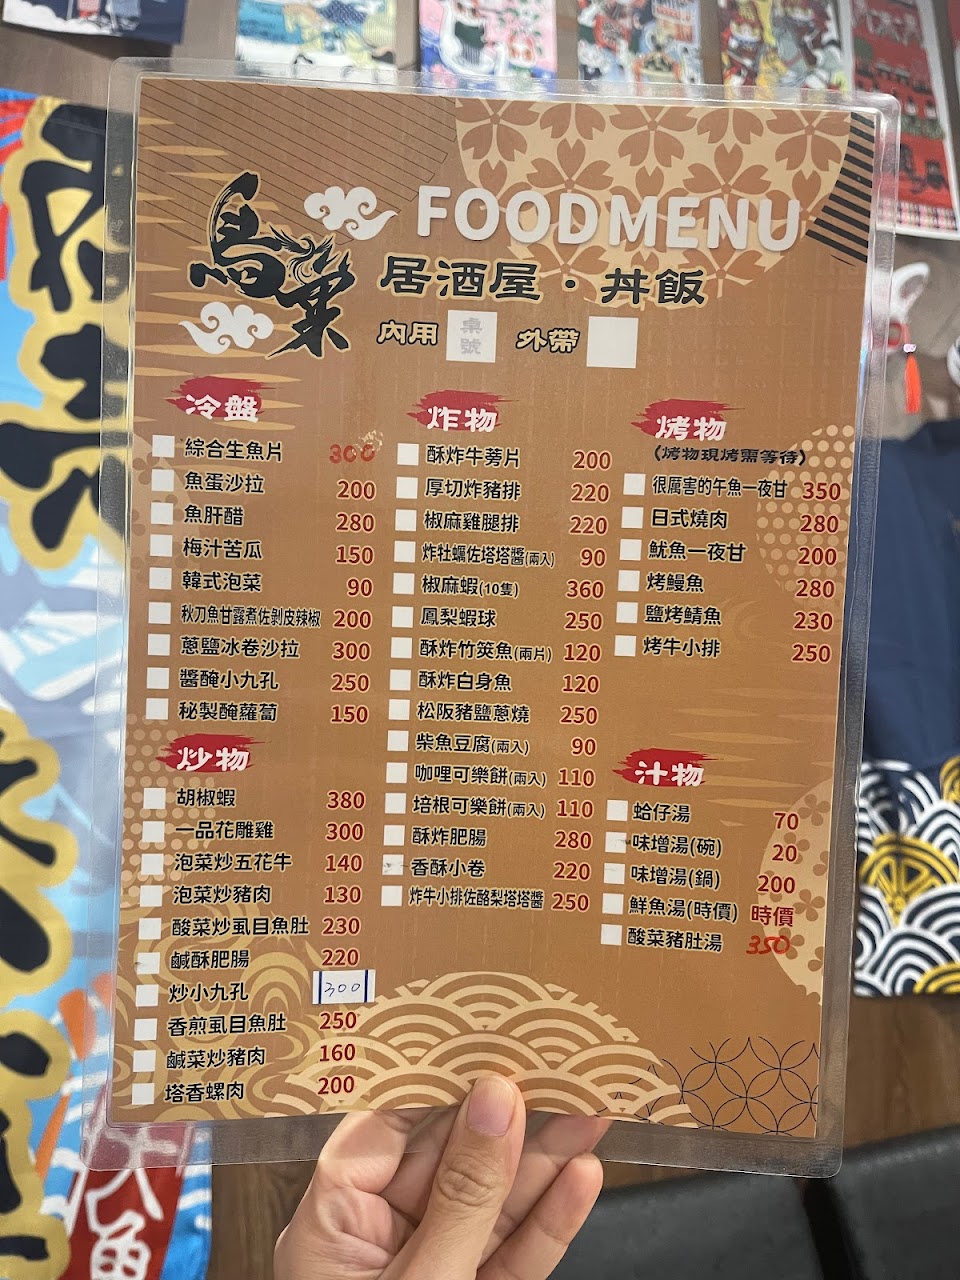 FOODMENU
居酒屋・丼飯
內用 桌號 外帶
冷盤
綜合生魚片 300
魚蛋沙拉 200
魚肝醋 280
梅汁苦瓜 150
韓式泡菜 90
秋刀魚甘露煮佐剝皮辣椒 200
蔥鹽冰卷沙拉 300
醬醃小九孔 250
秘製醃蘿蔔 150
炒物
胡椒蝦 380
一品花雕雞 300
泡菜炒五花牛 140
泡菜炒豬肉 130
酸菜炒虱目魚肚 230
鹹酥肥腸 220
炒小九孔 300
香煎虱目魚肚 250
鹹菜炒豬肉 160
塔香螺肉 200
炸物
酥炸牛蒡片 200
厚切炸豬排 220
椒麻雞腿排 220
炸牡蠣佐塔塔醬(兩入) 90
椒麻蝦(10隻) 360
鳳梨蝦球 250
酥炸竹筴魚(兩片) 120
酥炸白身魚 120
松阪豬鹽蔥燒 250
柴魚豆腐(兩入) 90
咖哩可樂餅(兩入) 110
培根可樂餅(兩入) 110
酥炸肥腸 280
香酥小卷 220
炸牛小排佐酪梨塔塔醬 250
烤物
(烤物現烤需等待)
很厲害的午魚一夜甘 350
日式燒肉 280
魷魚一夜甘 200
烤鰻魚 280
鹽烤鯖魚 230
烤牛小排 250
汁物
蛤仔湯 70
味增湯(碗) 20
味增湯(鍋) 200
鮮魚湯(時價) 時價
酸菜豬肚湯 350